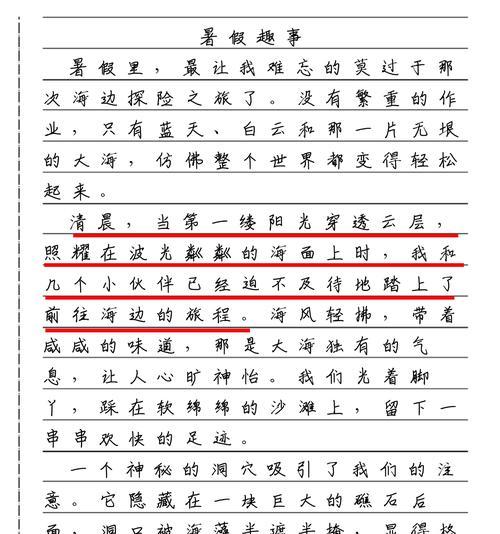 暑假趣事
暑假里，最让我难忘的莫过于那
次海边探险之旅了。没有繁重的作
业，只有蓝天、白云和那一片无垠
的大海，仿佛整个世界都变得轻松
起来。
清晨，当第一缕阳光穿透云层，
照耀在波光粼粼的海面上时，我和
几个小伙伴已经迫不及待地踏上了
前往海边的旅程。海风轻拂，带着
咸咸的味道，那是大海独有的气
息，让人心旷神怡。我们光着脚
丫，踩在软绵绵的沙滩上，留下一
串串欢快的足迹。
一个神秘的洞穴吸引了我们的注
意。它隐藏在一块巨大的礁石后
面，洞口被海藻半遮半掩，显得格